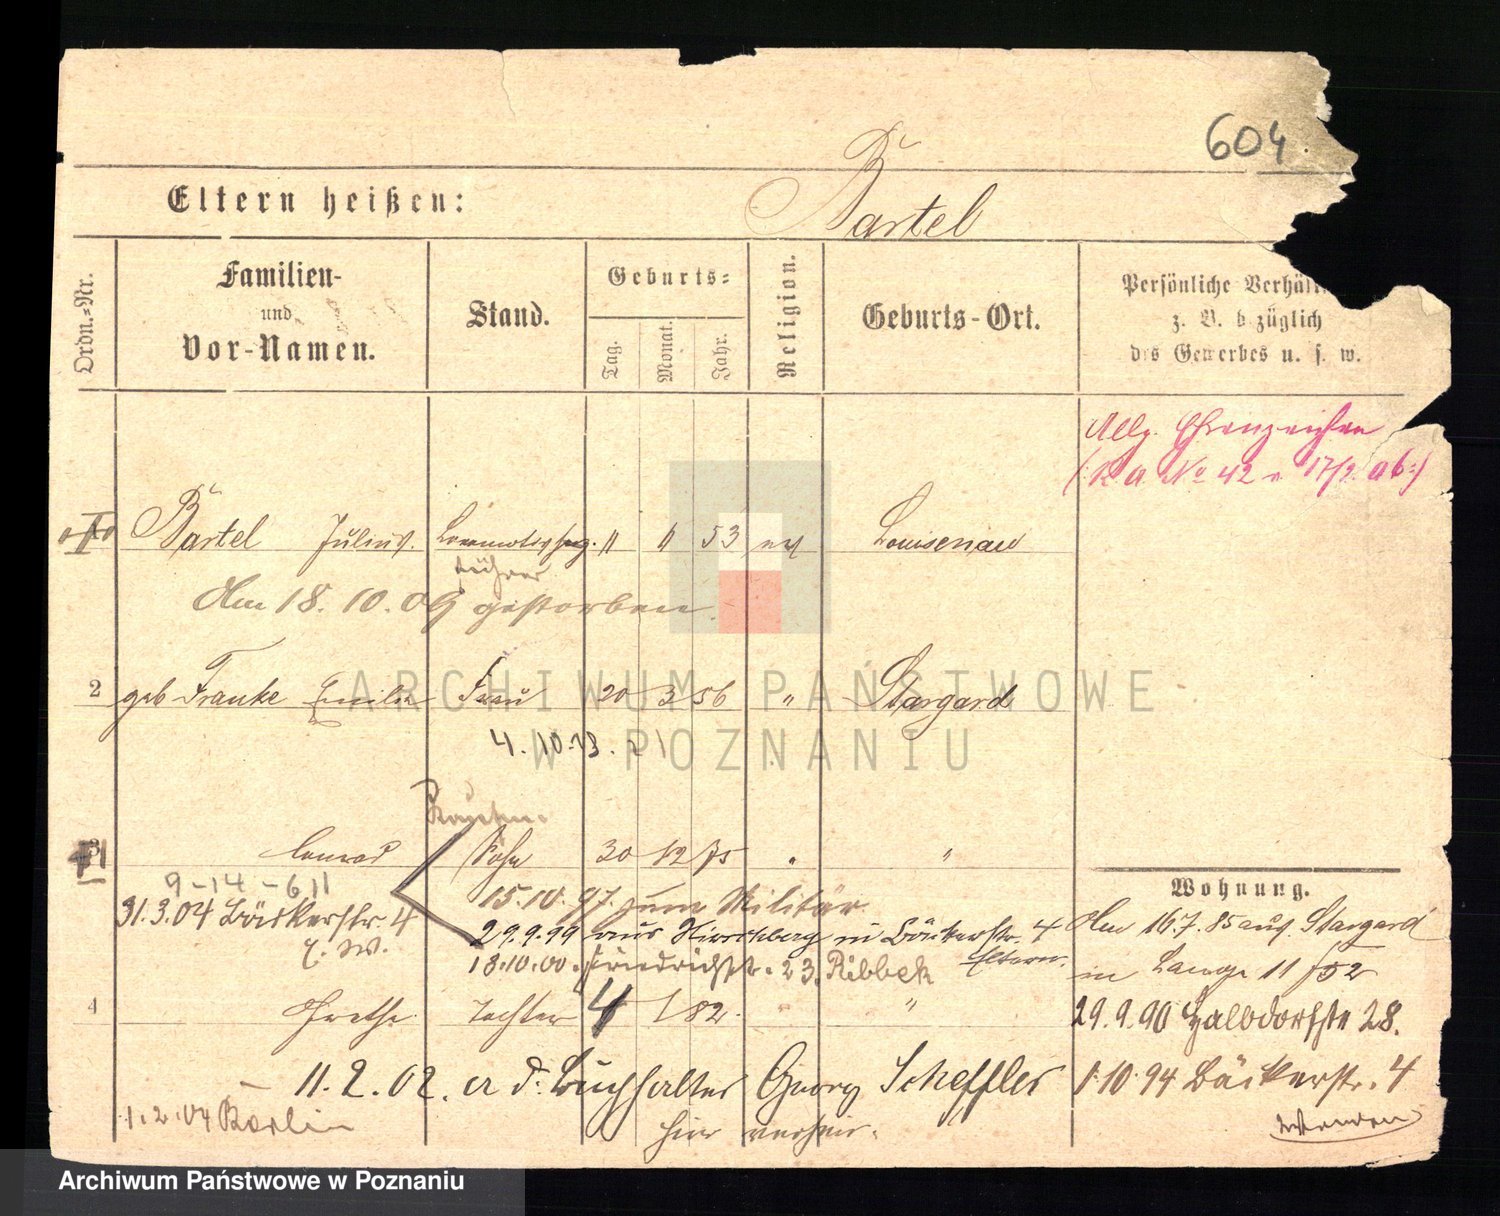 604.
Eltern heißen:
Bartel
Ordn.-Nr.
Familien-
und
Vor-Namen.
Stand.
Geburts-
Tag.
Monat.
Jahr.
Religion.
Geburts-Ort.
Persönliche Verhält
z. B. bezüglich
des Gewerbes u. s. w.
Allg. Ehrenzeichen
(: K. a. No 42 v. 17/2. ab :)
Bartel Julius. 11 11 53 ev Louisenau
führer
Am 18. 10. 09 gestorben.
2 geb Franke Emilie Frau 20 3 56 " Stargard
4. 10. 13.
3 Conrad Sohn 30 12 75 " "
9-14-611
15.10.97. zum Militär
Wohnung.
31.3.04 Bäckerstr. 4
29.9.99 aus Hirschberg n Bäckerstr. 4
Eltern.
Am 16.7.85 aus Stargard
18.10.00. Friedrichstr. 23. Ribbeck
in Lange 11 / 52
4 Grethe Tochter 4 1 82. " "
29.9.90 Halbdorfstr 28.
11.2.02. a d. Buchhalter Georg Scheffler
1.10.94 Bäckerstr. 4
1.2.04 Berlin
hier verh.
Wenden
ARCHIWUM PAŃSTWOWE
W POZNANIU
Archiwum Państwowe w Poznaniu